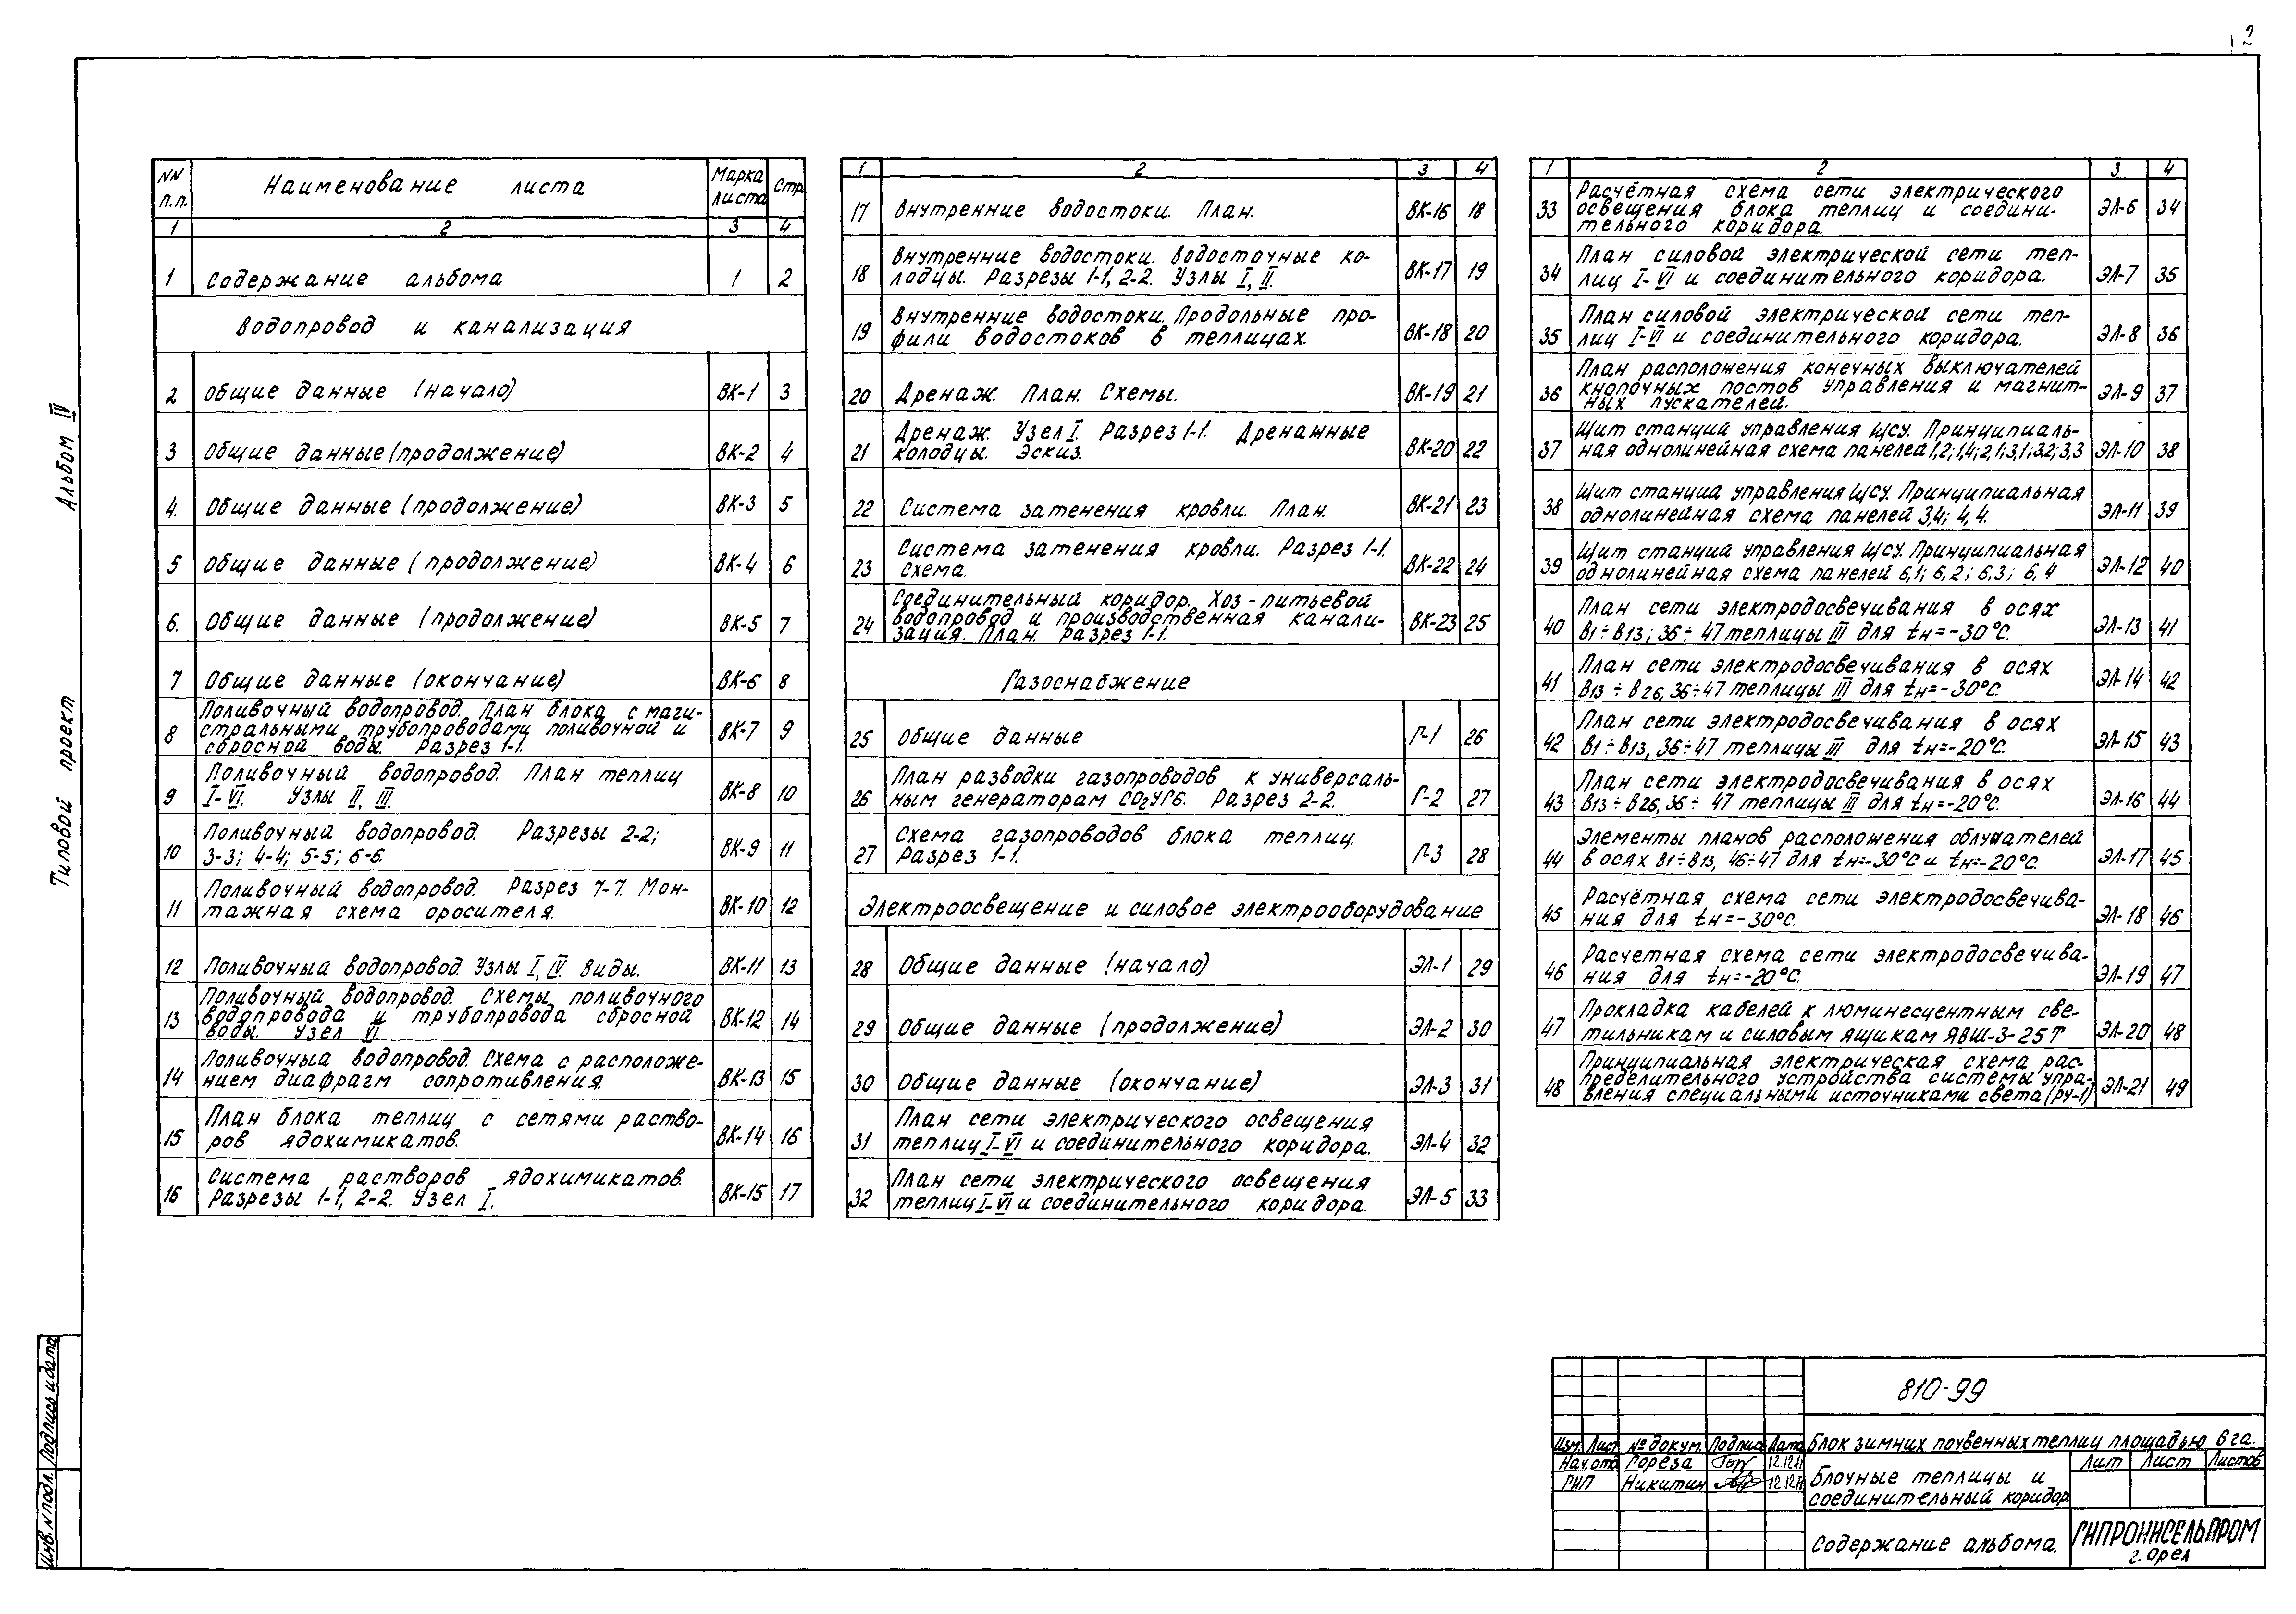 2
Альбом IV
Типовой проект
Инв.N подл. Подпись и дата
NN п.п. Наименование листа Марка листа Стр
1 2 3 4
1 Содержание альбома 1 2
Водопровод и канализация
2 Общие данные (начало) ВК-1 3
3 Общие данные (продолжение) ВК-2 4
4. Общие данные (продолжение) ВК-3 5
5 Общие данные (продолжение) ВК-4 6
6. Общие данные (продолжение) ВК-5 7
7 Общие данные (окончание) ВК-6 8
Поливочный водопровод. План блока с маги-
8 стральными трубопроводами поливочной и ВК-7 9
сбросной воды. Разрез 1-1.
Поливочный водопровод. План теплиц
9 I-VI. Узлы II, III. ВК-8 10
Поливочный водопровод. Разрезы 2-2;
10 3-3; 4-4; 5-5; 6-6. ВК-9 11
Поливочный водопровод. Разрез 7-7. Мон-
11 тажная схема оросителя. ВК-10 12
12 Поливочный водопровод. Узлы I, IV. Виды. ВК-11 13
Поливочный водопровод. Схемы поливочного
13 водопровода и трубопровода сбросной ВК-12 14
воды. Узел VI.
Поливочный водопровод. Схема с расположе-
14 нием диафрагм сопротивления. ВК-13 15
План блока теплиц с сетями раство-
15 ров ядохимикатов. ВК-14 16
Система растворов ядохимикатов.
16 Разрезы 1-1, 2-2. Узел I. ВК-15 17
1 2 3 4
17 Внутренние водостоки. План. ВК-16 18
Внутренние водостоки. Водосточные ко-
18 лодцы. Разрезы 1-1, 2-2. Узлы I, II. ВК-17 19
Внутренние водостоки. Продольные про-
19 фили водостоков в теплицах. ВК-18 20
20 Дренаж. План. Схемы. ВК-19 21
Дренаж. Узел I. Разрез 1-1. Дренажные
21 колодцы. Эскиз. ВК-20 22
22 Система затенения кровли. План. ВК-21 23
Система затенения кровли. Разрез 1-1.
23 Схема. ВК-22 24
Соединительный коридор. Хоз-питьевой
24 водопровод и производственная канали- ВК-23 25
зация. План. Разрез 1-1.
Газоснабжение
25 Общие данные Г-1 26
План разводки газопроводов к универсаль-
26 ным генераторам СО2УГ6. Разрез 2-2. Г-2 27
Схема газопроводов блока теплиц.
27 Разрез 1-1. Г-3 28
Электроосвещение и силовое электрооборудование
28 Общие данные (начало) ЭЛ-1 29
29 Общие данные (продолжение) ЭЛ-2 30
30 Общие данные (окончание) ЭЛ-3 31
План сети электрического освещения
31 теплиц I-VI и соединительного коридора. ЭЛ-4 32
План сети электрического освещения
32 теплиц I-VI и соединительного коридора. ЭЛ-5 33
1 2 3 4
Расчётная схема сети электрического
33 освещения блока теплиц и соедини- ЭЛ-6 34
тельного коридора.
План силовой электрической сети теп-
34 лиц I-VI и соединительного коридора. ЭЛ-7 35
План силовой электрической сети теп-
35 лиц I-VI и соединительного коридора. ЭЛ-8 36
План расположения конечных выключателей
36 кнопочных постов управления и магнит- ЭЛ-9 37
ных пускателей.
Щит станций управления ЩСУ. Принципиаль-
37 ная однолинейная схема панелей 1,2; 1,4; 2,1; 3,1; 3,2; 3,3 ЭЛ-10 38
Щит станций управления ЩСУ. Принципиальная
38 однолинейная схема панелей 3,4; 4,4. ЭЛ-11 39
Щит станций управления ЩСУ. Принципиальная
39 однолинейная схема панелей 6,1; 6,2; 6,3; 6,4 ЭЛ-12 40
План сети электродосвечивания в осях
40 В1÷В13; 36÷47 теплицы III для tн=-30°С. ЭЛ-13 41
План сети электродосвечивания в осях
41 В13÷В26, 36÷47 теплицы III для tн=-30°С. ЭЛ-14 42
План сети электродосвечивания в осях
42 В1÷В13, 36÷47 теплицы III для tн=-20°С. ЭЛ-15 43
План сети электродосвечивания в осях
43 В13÷В26, 36÷47 теплицы III для tн=-20°С. ЭЛ-16 44
Элементы планов расположения облучателей
44 в осях В1÷В13, 46÷47 для tн=-30°С и tн=-20°С. ЭЛ-17 45
Расчётная схема сети электродосвечива-
45 ния для tн=-30°С. ЭЛ-18 46
Расчетная схема сети электродосвечива-
46 ния для tн=-20°С. ЭЛ-19 47
Прокладка кабелей к люминесцентным све-
47 тильникам и силовым ящикам ЯВШ-3-25Т ЭЛ-20 48
Принципиальная электрическая схема рас-
48 пределительного устройства системы упра- ЭЛ-21 49
вления специальными источниками света (РУ-1)
810-99
Изм. Лист № докум. Подпись Дата Блок зимних почвенных теплиц площадью 6 га.
Нач.отд Гореза 12.12
ГИП Никитин 12.12
Блочные теплицы и
соединительный коридор.
Лит Лист Листов
Содержание альбома.
ГИПРОНИСЕЛЬПРОМ
г. Орел